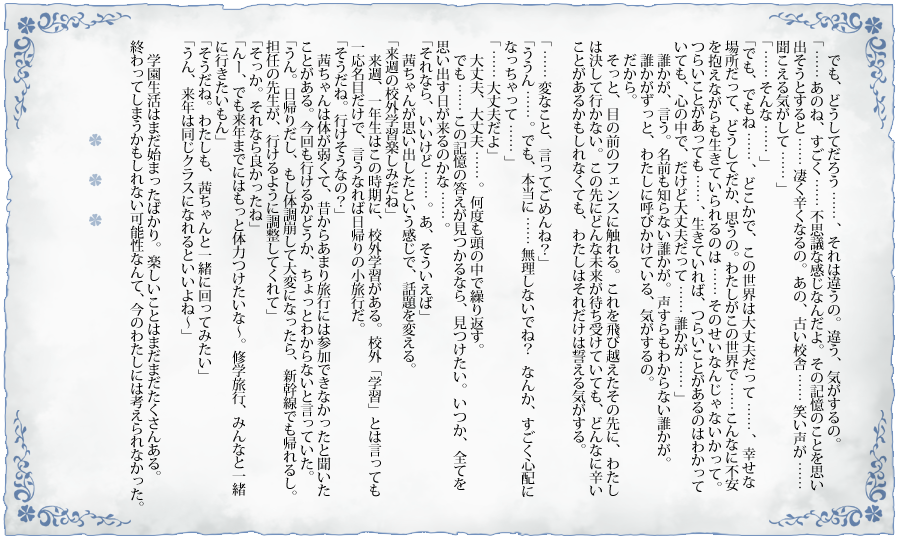 でも、どうしてだろう……、それは違うの。違う、気がするの。
「……あのね、すごく……不思議な感じなんだよ。その記憶のことを思い
出そうとすると……凄く辛くなるの。あの、古い校舎……笑い声が……
聞こえる気がして……」
「……そんな……」
「でも、でもね……、どこかで、この世界は大丈夫だって……、幸せな
場所だって、どうしてだか、思うの。わたしがこの世界で……こんなに不安
を抱えながらも生きていられるのは……そのせいなんじゃないかって。
つらいことがあっても……生きていれば、つらいことがあるのはわかって
いても、心の中で、だけど大丈夫だって……誰かが……」
誰かが、言う。名前も知らない誰かが。声すらもわからない誰かが。
誰かがずっと、わたしに呼びかけている、気がするの。
だから。
そっと、目の前のフェンスに触れる。これを飛び越えたその先に、わたし
は決して行かない。この先にどんな未来が待ち受けていても、どんなに辛い
ことがあるかもしれなくても、わたしはそれだけは誓える気がする。
「……変なこと、言ってごめんね?」
「ううん……。でも、本当に……無理しないでね? なんか、すごく心配に
なっちゃって……」
「……大丈夫だよ」
大丈夫、大丈夫……。何度も頭の中で繰り返す。
でも……この記憶の答えが見つかるなら、見つけたい。いつか、全てを
思い出す日が来るのかな……。
「それなら、いいけど……。あ、そういえば」
茜ちゃんが思い出したという感じで、話題を変える。
「来週の校外学習楽しみだね」
来週、一年生はこの時期に、校外学習がある。校外「学習」とは言っても
一応名目だけで、言うなれば日帰りの小旅行だ。
「そうだね。行けそうなの?」
茜ちゃんは体が弱くて、昔からあまり旅行には参加できなかったと聞いた
ことがある。今回も行けるかどうか、ちょっとわからないと言っていた。
「うん。日帰りだし、もし体調崩して大変になったら、新幹線でも帰れるし。
担任の先生が、行けるように調整してくれて」
「そっか。それなら良かったね」
「んー、でも来年までにはもっと体力つけたいな~。修学旅行、みんなと一緒
に行きたいもん」
「そうだね。わたしも、茜ちゃんと一緒に回ってみたい」
「うん、来年は同じクラスになれるといいよね~」
学園生活はまだ始まったばかり。楽しいことはまだまだたくさんある。
終わってしまうかもしれない可能性なんて、今のわたしには考えられなかった。